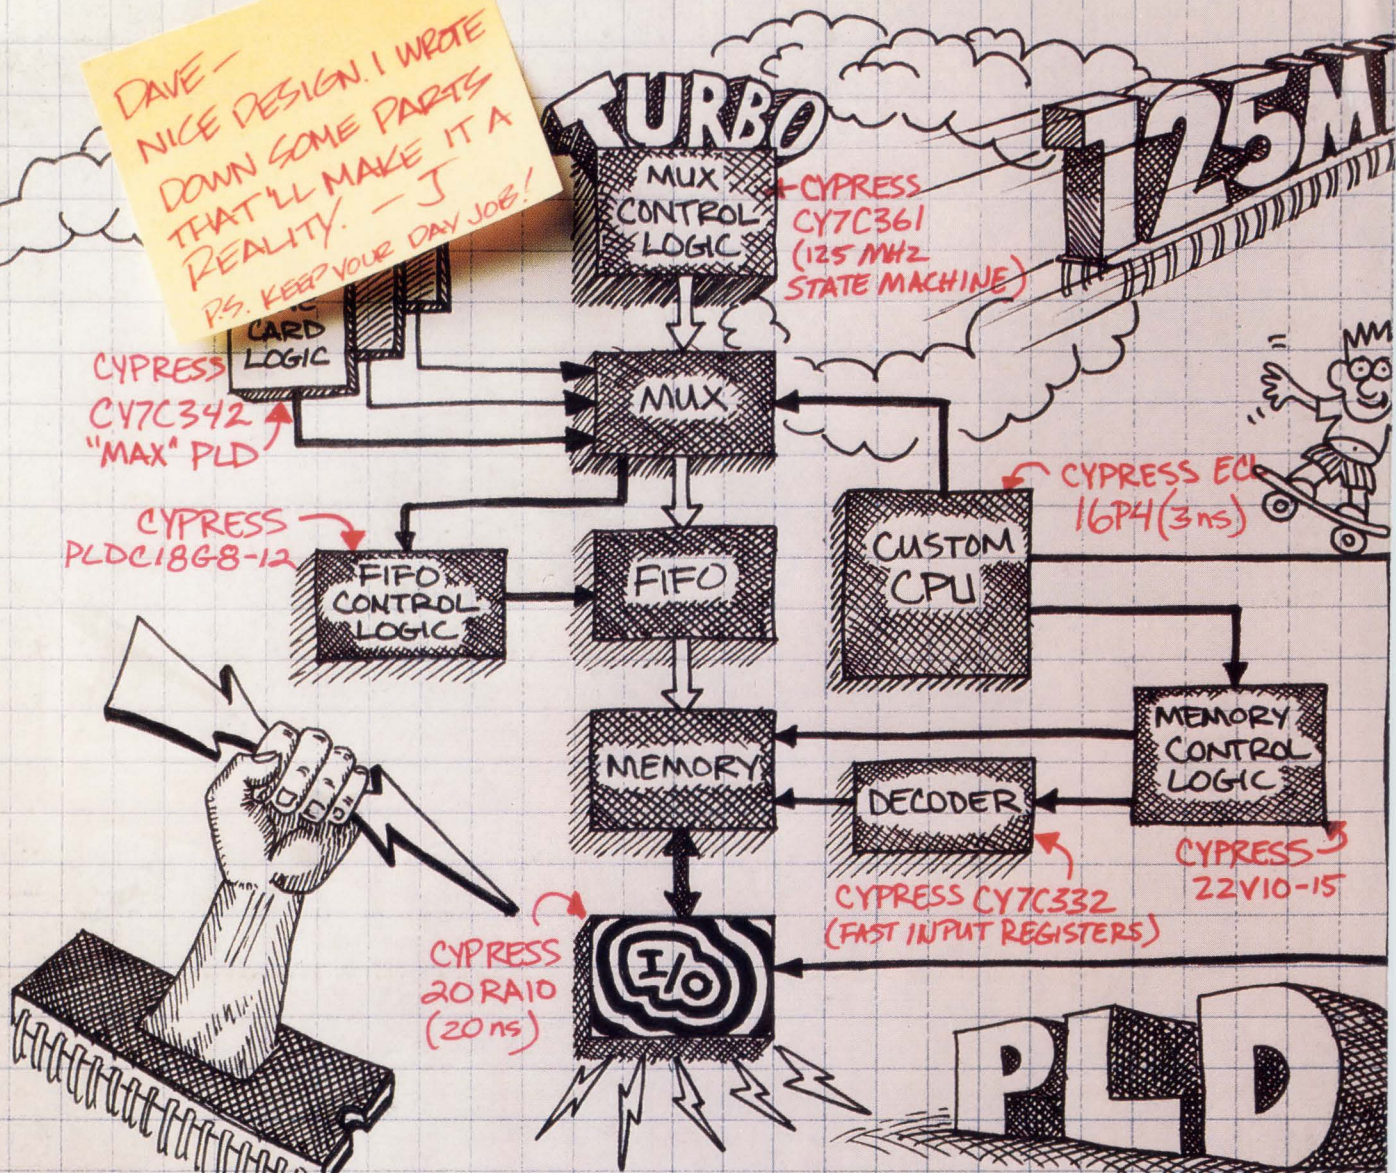 DAVE-
NICE DESIGN. I WROTE
DOWN SOME PARTS
THAT'LL MAKE IT A
REALITY. - J
P.S. KEEP YOUR DAY JOB!
TURBO
MUX
CONTROL
LOGIC
CYPRESS
CY7C361
(125 MHZ
STATE MACHINE)
125M
CARD
LOGIC
CYPRESS
CY7C342
"MAX" PLD
MUX
CYPRESS
PLDC18G8-12
FIFO
CONTROL
LOGIC
FIFO
CUSTOM
CPU
CYPRESS ECL
16P4 (3ns)
MEMORY
DECODER
MEMORY
CONTROL
LOGIC
CYPRESS
22V10-15
CYPRESS CY7C332
(FAST INPUT REGISTERS)
CYPRESS
20RA10
(20ns)
I/O
PLD